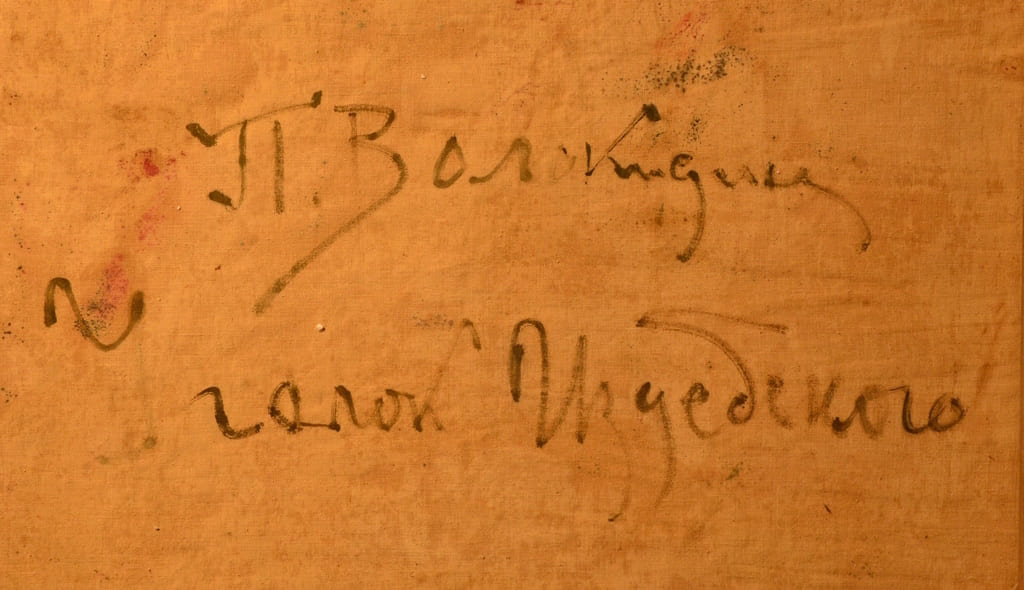 П. Волокидин
Салон Издебского